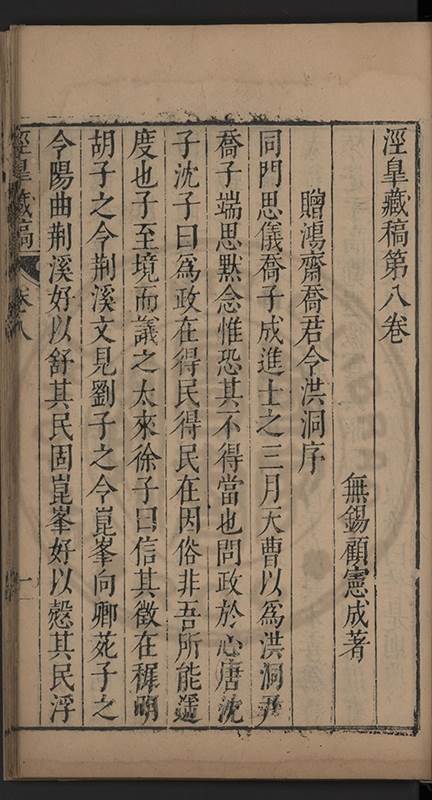 涇臯藏稿第八卷
無錫顧憲成著
贈鴻齋喬君令洪洞序
同門思儀喬子成進士之三月天曹以為洪洞尹
喬子端思默念惟恐其不得當也問政於心唐沈
子沈子曰爲政在得民得民在因俗非吾所能遥
度也子至境而議之太來徐子曰信其徵在穉明
胡子之令荆溪文見劉子之令崑峯向卿茺子之
令陽曲荆溪好以舒其民固崑峯好以愨其民浮
涇臯藏稿 卷八 一